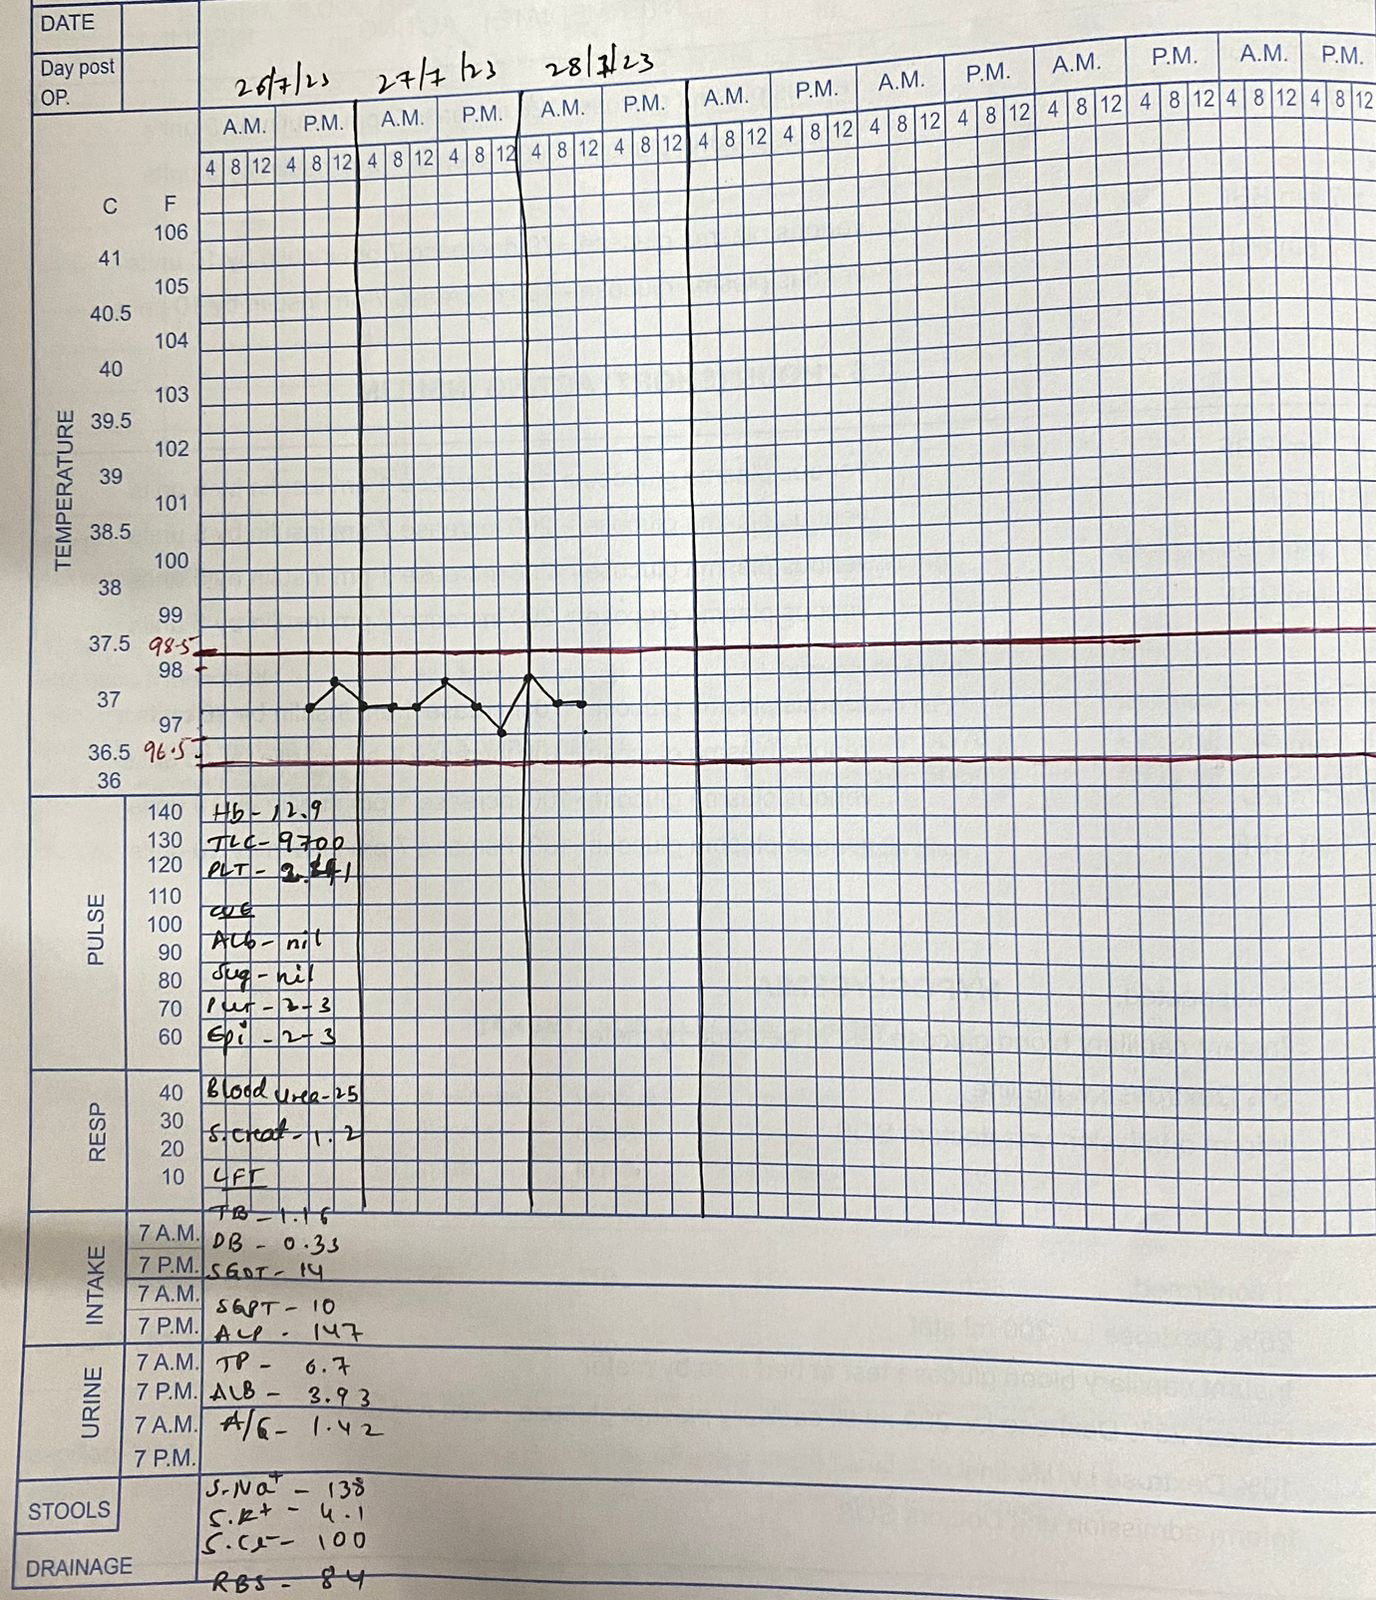 DATE
Day post
OP.
26/7/23 27/7/23 28/7/23
A.M. P.M. A.M. P.M. A.M. P.M. A.M. P.M. A.M. P.M. A.M. P.M. A.M. P.M.
4 8 12 4 8 12 4 8 12 4 8 12 4 8 12 4 8 12 4 8 12 4 8 12 4 8 12 4 8 12 4 8 12 4 8 12 4 8 12 4 8 12
TEMPERATURE
C F
106
41
105
40.5
104
40
103
39.5
102
39
101
38.5
100
38
99
37.5 98.5
98
37
97
36.5 96.5
36
PULSE
140 Hb - 12.9
130 TLC - 9700
120 PLT -
110
100 CUE
90 Alb - nil
80 Sug - nil
70 Pus - 2-3
60 Epi - 2-3
RESP
40 Blood urea - 25
30
20 S.creat - 1.2
10 LFT
TB - 1.16
INTAKE
7 A.M. DB - 0.33
7 P.M. SGOT - 14
7 A.M. SGPT - 10
7 P.M. ALP - 147
URINE
7 A.M. TP - 6.7
7 P.M. ALB - 3.93
7 A.M. A/G - 1.42
7 P.M.
STOOLS
S.Na+ - 138
S.K+ - 4.1
S.Cl- - 100
DRAINAGE
RBS - 84